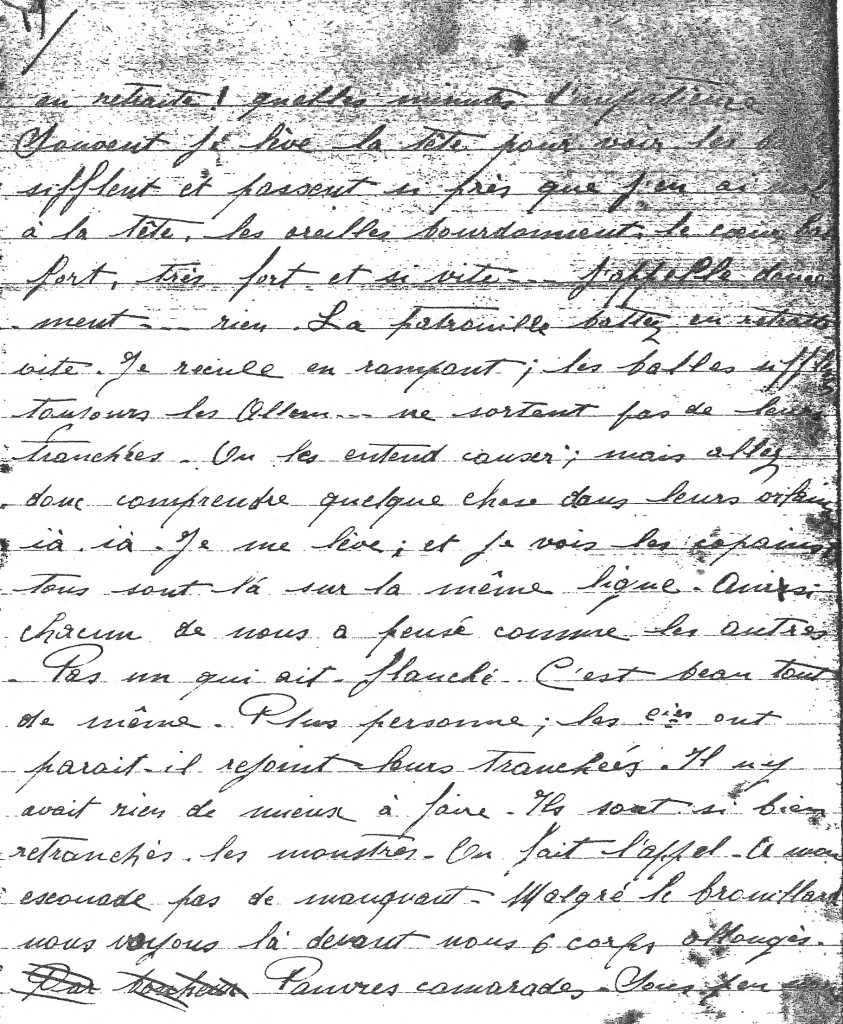 en retraite ! quelles minutes d'impatience
Souvent je lève la tête pour voir les
sifflent et passent si près que j'en ai mal
à la tête. les oreilles bourdonnent. le cœur bat
fort, très fort et si vite --- j'appelle douce
- ment --- rien. La patrouille battez en retraite
vite. Je recule en rampant ; les balles siffle
toujours les Allem--- ne sortent pas de leurs
tranchées. On les entend causer ; mais allez
donc comprendre quelque chose dans leurs
ià. ià. Je me lève ; et je vois les copains
tous sont là sur la même ligne. Ainsi
chacun de nous a pensé comme les autres
- Pas un qui ait flanché. C'est beau tout
de même. Plus personne ; les cies ont
parait-il rejoint leurs tranchées. Il n'y
avait rien de mieux à faire. Ils sont si bien
retranchés. les monstres. On fait l'appel. A mon
escouade pas de manquant. Malgré le brouillard
nous voyons là devant nous 6 corps allongés.
Par Pauvres camarades. Sous peu